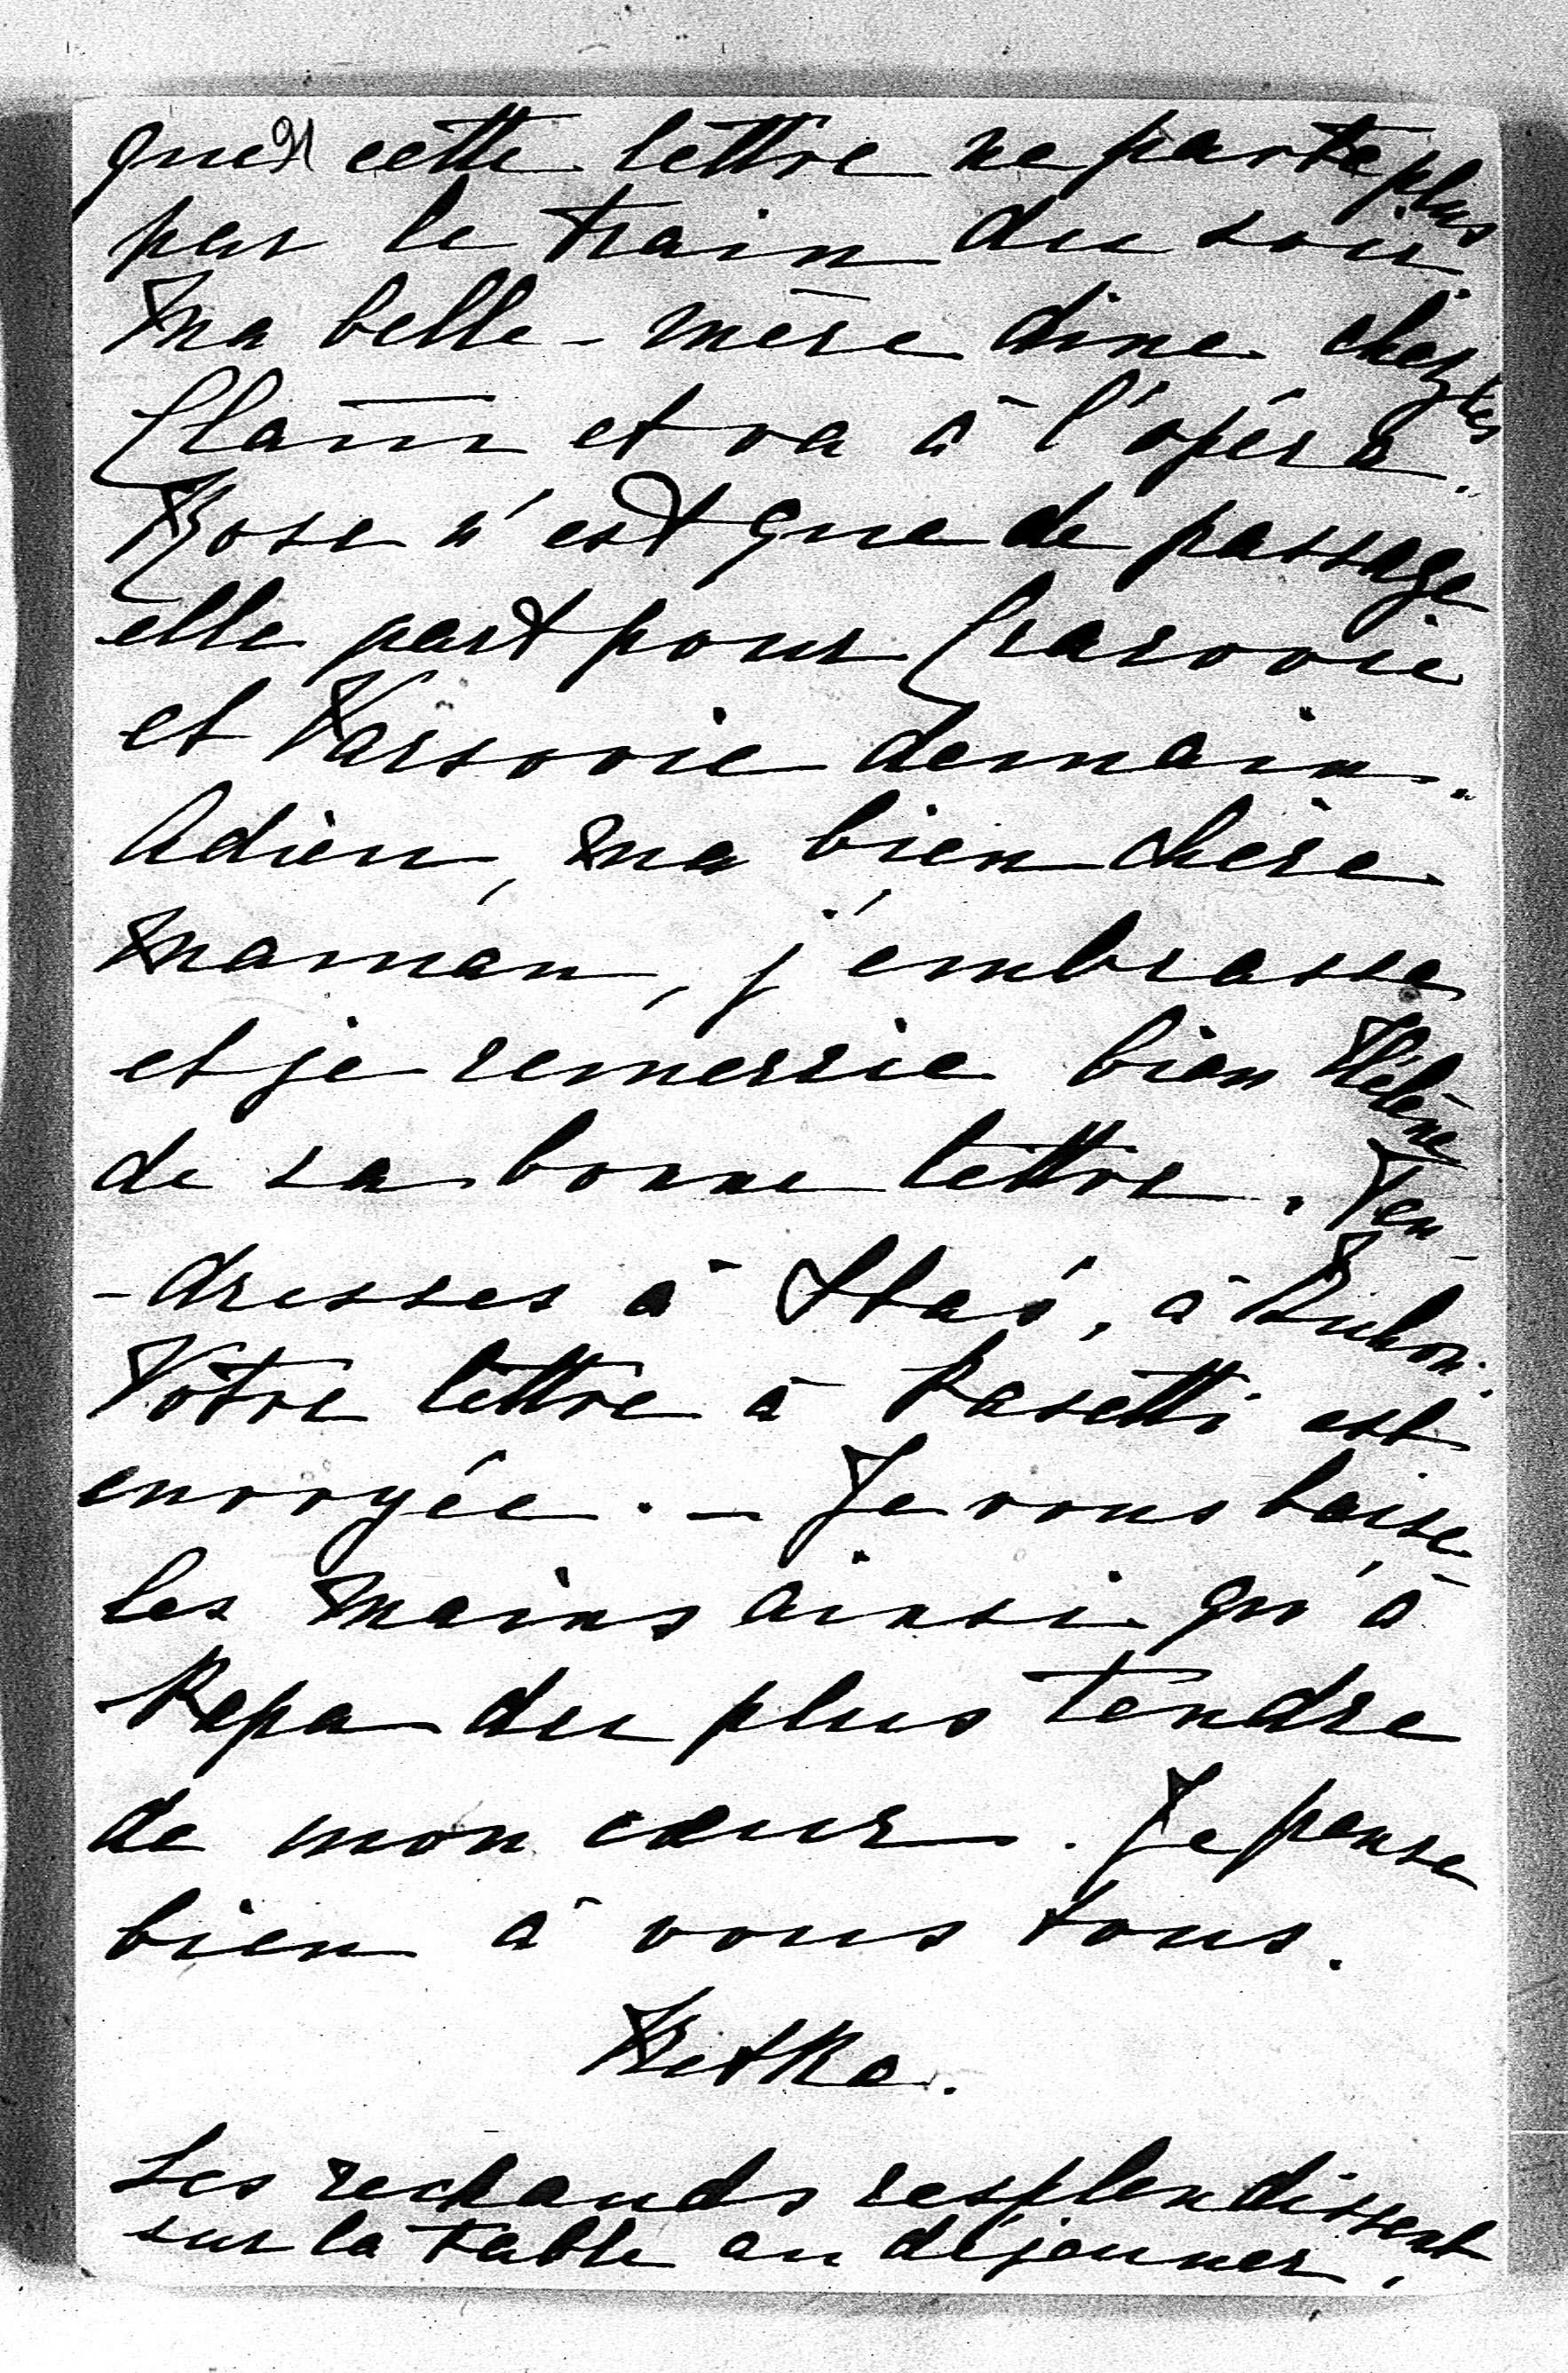 que cette lettre ne parte plus
par le train du soir.
Ma belle-mère dine chez les
Clam et va à l'opéra.
Rose n'est que de passage
elle part pour Cracovie
et Varsovie demain.
Adieu, ma bien chère
Maman, j'embrasse
et je remercie bien Hélène
de sa bonne lettre. Ten-
-dresses à Staś, à
Votre lettre à Rasetti est
envoyée. – Je vous baise
les mains ainsi qu'à
Papa du plus tendre
de mon cœur. Je pense
bien à vous tous.
Betka.
Les rechauds resplendissent
sur la table au déjeuner.